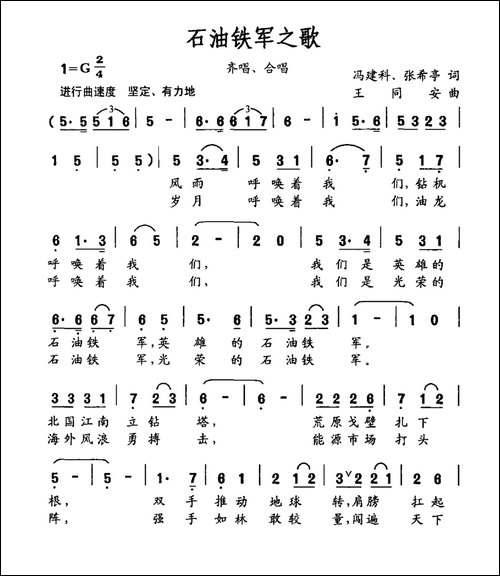 石油铁军之歌
1=G 2/4
齐唱、合唱
冯建科、张希亭 词
进行曲速度 坚定、有力地
王同安 曲
(5·5 5 1 6 | 5 - | 6·6 6 1 7 | 6 - | 1 5·6 | 5 3 2 3 |
1 5 | 5 5) | 5 3·4 | 5 3 1 | 6·7 | 5 1 7 |
风雨 呼唤着我 们,钻机
岁月 呼唤着我 们,油龙
6 1·3 | 6 5 | 2 - | 2 0 | 5 3·6 | 5 3 1 |
呼唤着我 们, 我们是英雄的
呼唤着我 们, 我们是光荣的
6·6 6 7 | 5 6 | 5·5 | 5·3 2 3 | 1 - | 1 0 |
石油铁 军,英雄的石油铁 军。
石油铁 军,光荣的石油铁 军。
3 3 3 1 | 7 2 3 | 6 - | 6 - | 2 2 2 6 | 7 1 2 |
北国江南 立钻塔, 荒原戈壁 扎下
海外风浪 勇搏击, 能源市场 打头
5 - | 5 - | 1·7 | 6 1 6 | 5 1 2 | 3 ∨ 2 2 2 1 | 6 1 2 |
根, 双手推动地球转,肩膀扛起
阵, 强手如林敢较量,闯遍天下